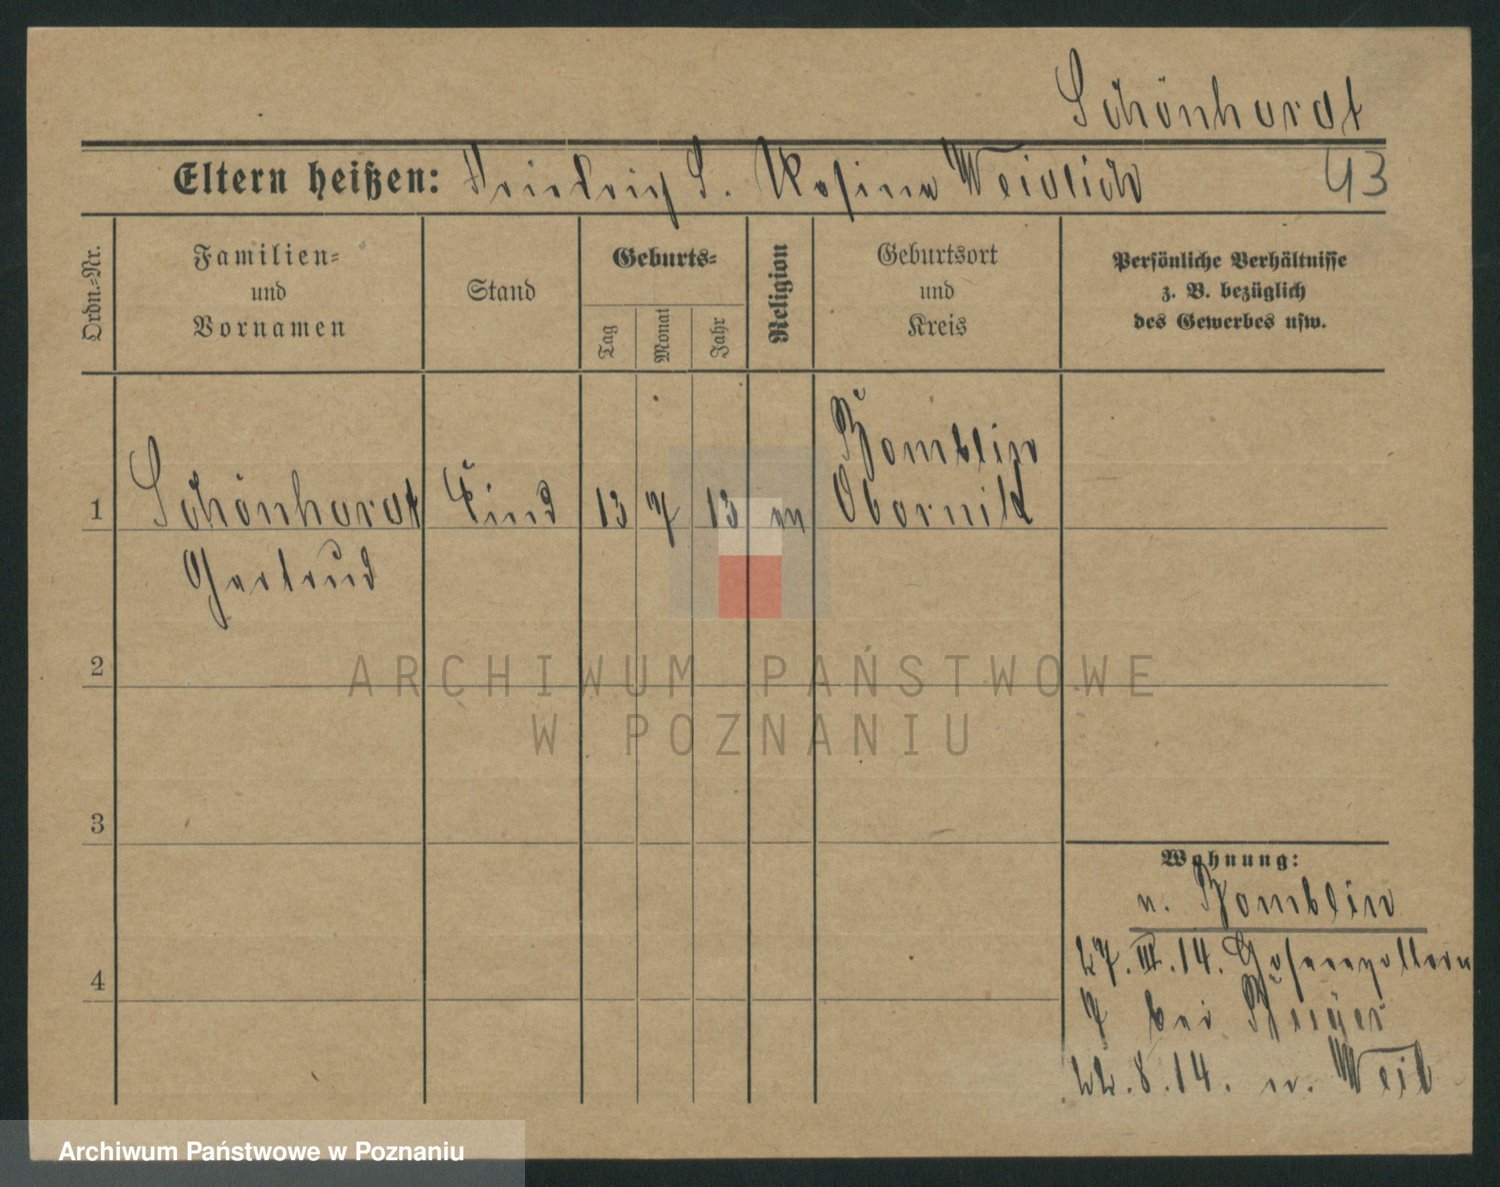 Schönhardt
Eltern heißen: Friedrich S. Rosina Weidlich 43
Ordn.-Nr.
Familien-
und
Vornamen
Stand
Geburts-
Tag
Monat
Jahr
Religion
Geburtsort
und
Kreis
Persönliche Verhältnisse
z. B. bezüglich
des Gewerbes usw.
Bomblin
1 Schönhardt Kind 13 7 13 Obornik
Gertrud
2
ARCHIWUM PAŃSTWOWE
W POZNANIU
3
Wohnung:
n. Bomblin
4
27. III. 14.
7 bei
22. 8. 14. n.
Archiwum Państwowe w Poznaniu